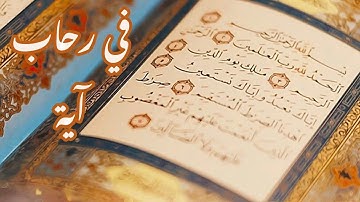 في رحاب
آية
بسم الله الرحمن الرحيم
الحمد لله رب العالمين الرحمن
الرحيم ملك يوم الدين
إياك نعبد وإياك نستعين
اهدنا الصراط المستقيم صراط
الذين أنعمت عليهم غير المغضوب
عليهم ولا الضالين